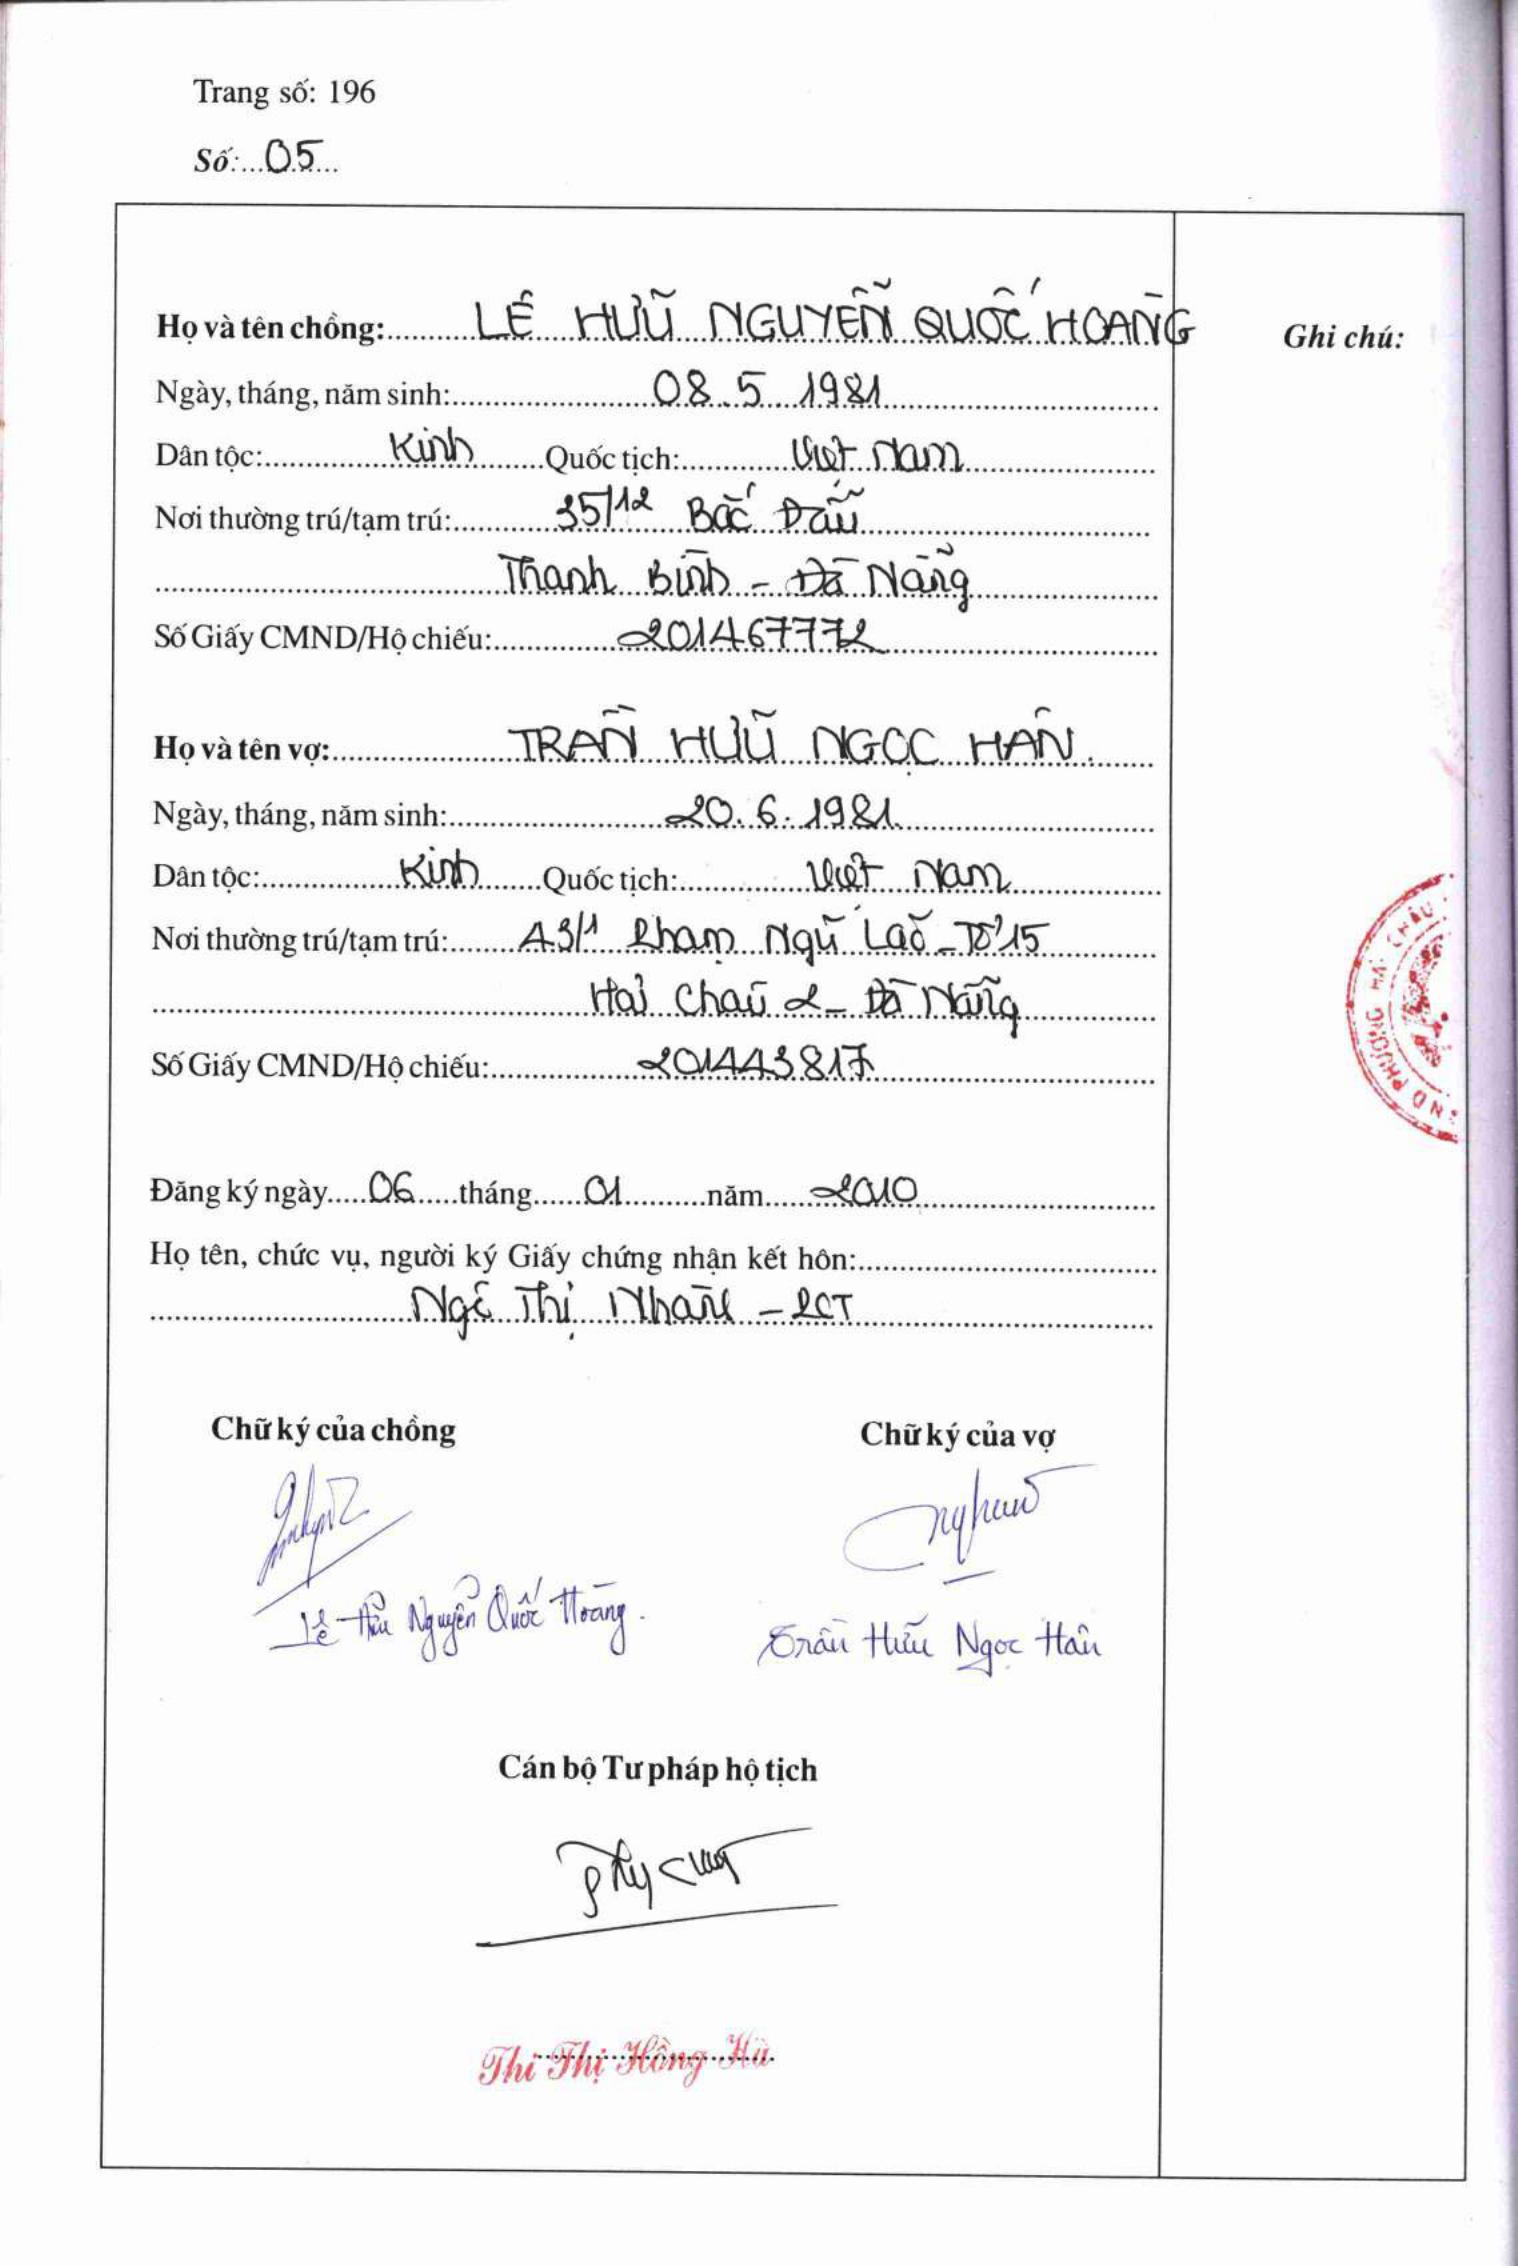 Trang số: 196
Số: 05
Họ và tên chồng: LÊ HỮU NGUYỄN QUỐC HOÀNG
Ghi chú:
Ngày, tháng, năm sinh: 08.5 1981
Dân tộc: Kinh Quốc tịch: Việt Nam
Nơi thường trú/tạm trú: 35/12 Bắc Đẩu
Thanh Bình - Đà Nẵng
Số Giấy CMND/Hộ chiếu: 201467772
Họ và tên vợ: TRẦN HỮU NGỌC HÂN
Ngày, tháng, năm sinh: 20.6.1981
Dân tộc: Kinh Quốc tịch: Việt Nam
Nơi thường trú/tạm trú: A3/1 Phạm Ngũ Lão - Tổ 15
Hải Châu 2 - Đà Nẵng
Số Giấy CMND/Hộ chiếu: 201443817
Đăng ký ngày 06 tháng 01 năm 2010
Họ tên, chức vụ, người ký Giấy chứng nhận kết hôn:
Ngô Thị Nhàn - PCT
Chữ ký của chồng
Chữ ký của vợ
Lê Hữu Nguyễn Quốc Hoàng.
Trần Hữu Ngọc Hân
Cán bộ Tư pháp hộ tịch
Thi Thị Hồng Hà
ND PHƯỜNG HẢI CHÂU